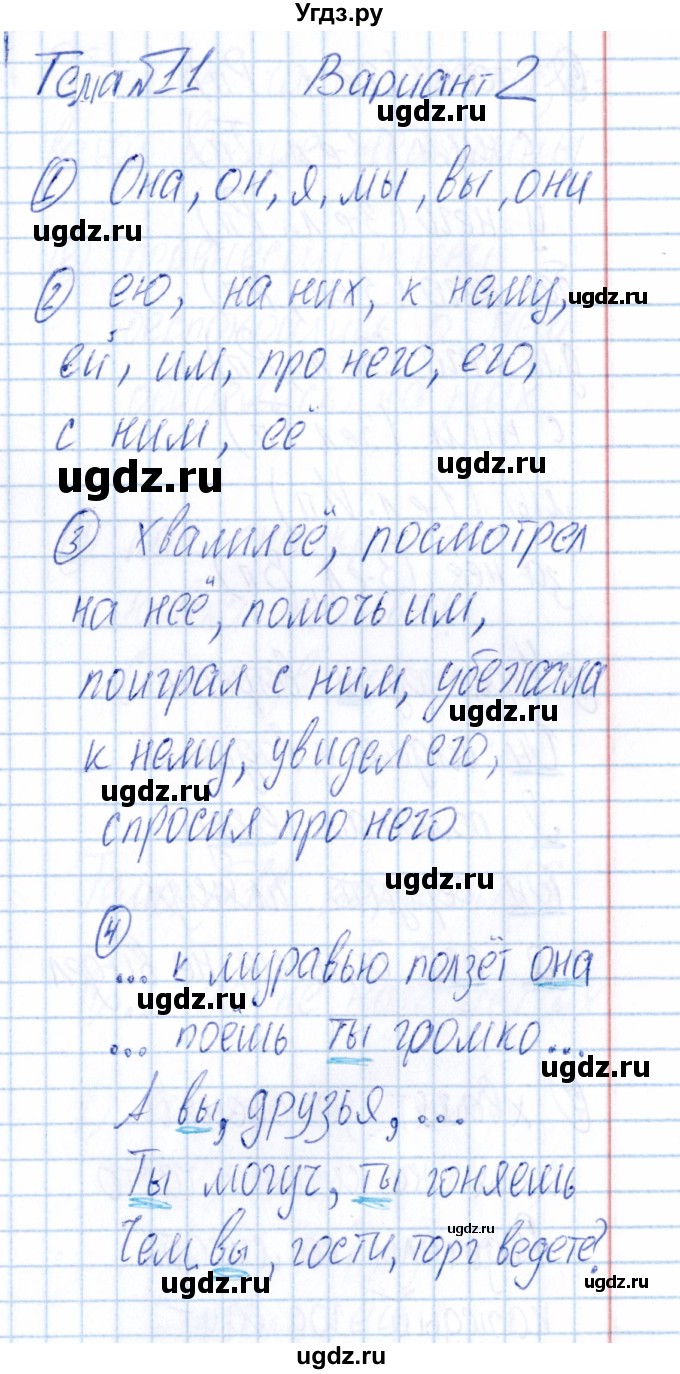 Угдз.ру
Тема №11 Вариант 2
ugdz.ru
① Она, он, я, мы, вы, они
ugdz.ru
② ею, на них, к нему,
ugdz.ru
ей, им, про него, его,
с ним, её
ugdz.ru
ugdz.ru
③ хвалил её, посмотрел
на неё, помочь им,
поиграл с ним, убежала
ugdz.ru
к нему, увидел его,
ugdz.ru
спросил про него
ugdz.ru
④
... к муравью ползёт она
ugdz.ru
... поёшь ты громко...
ugdz.ru
А вы, друзья, ...
Ты могуч, ты гоняешь
ugdz.ru
Чем вы, гости, торг ведете?
ugdz.ru
ugdz.ru
ugdz.ru